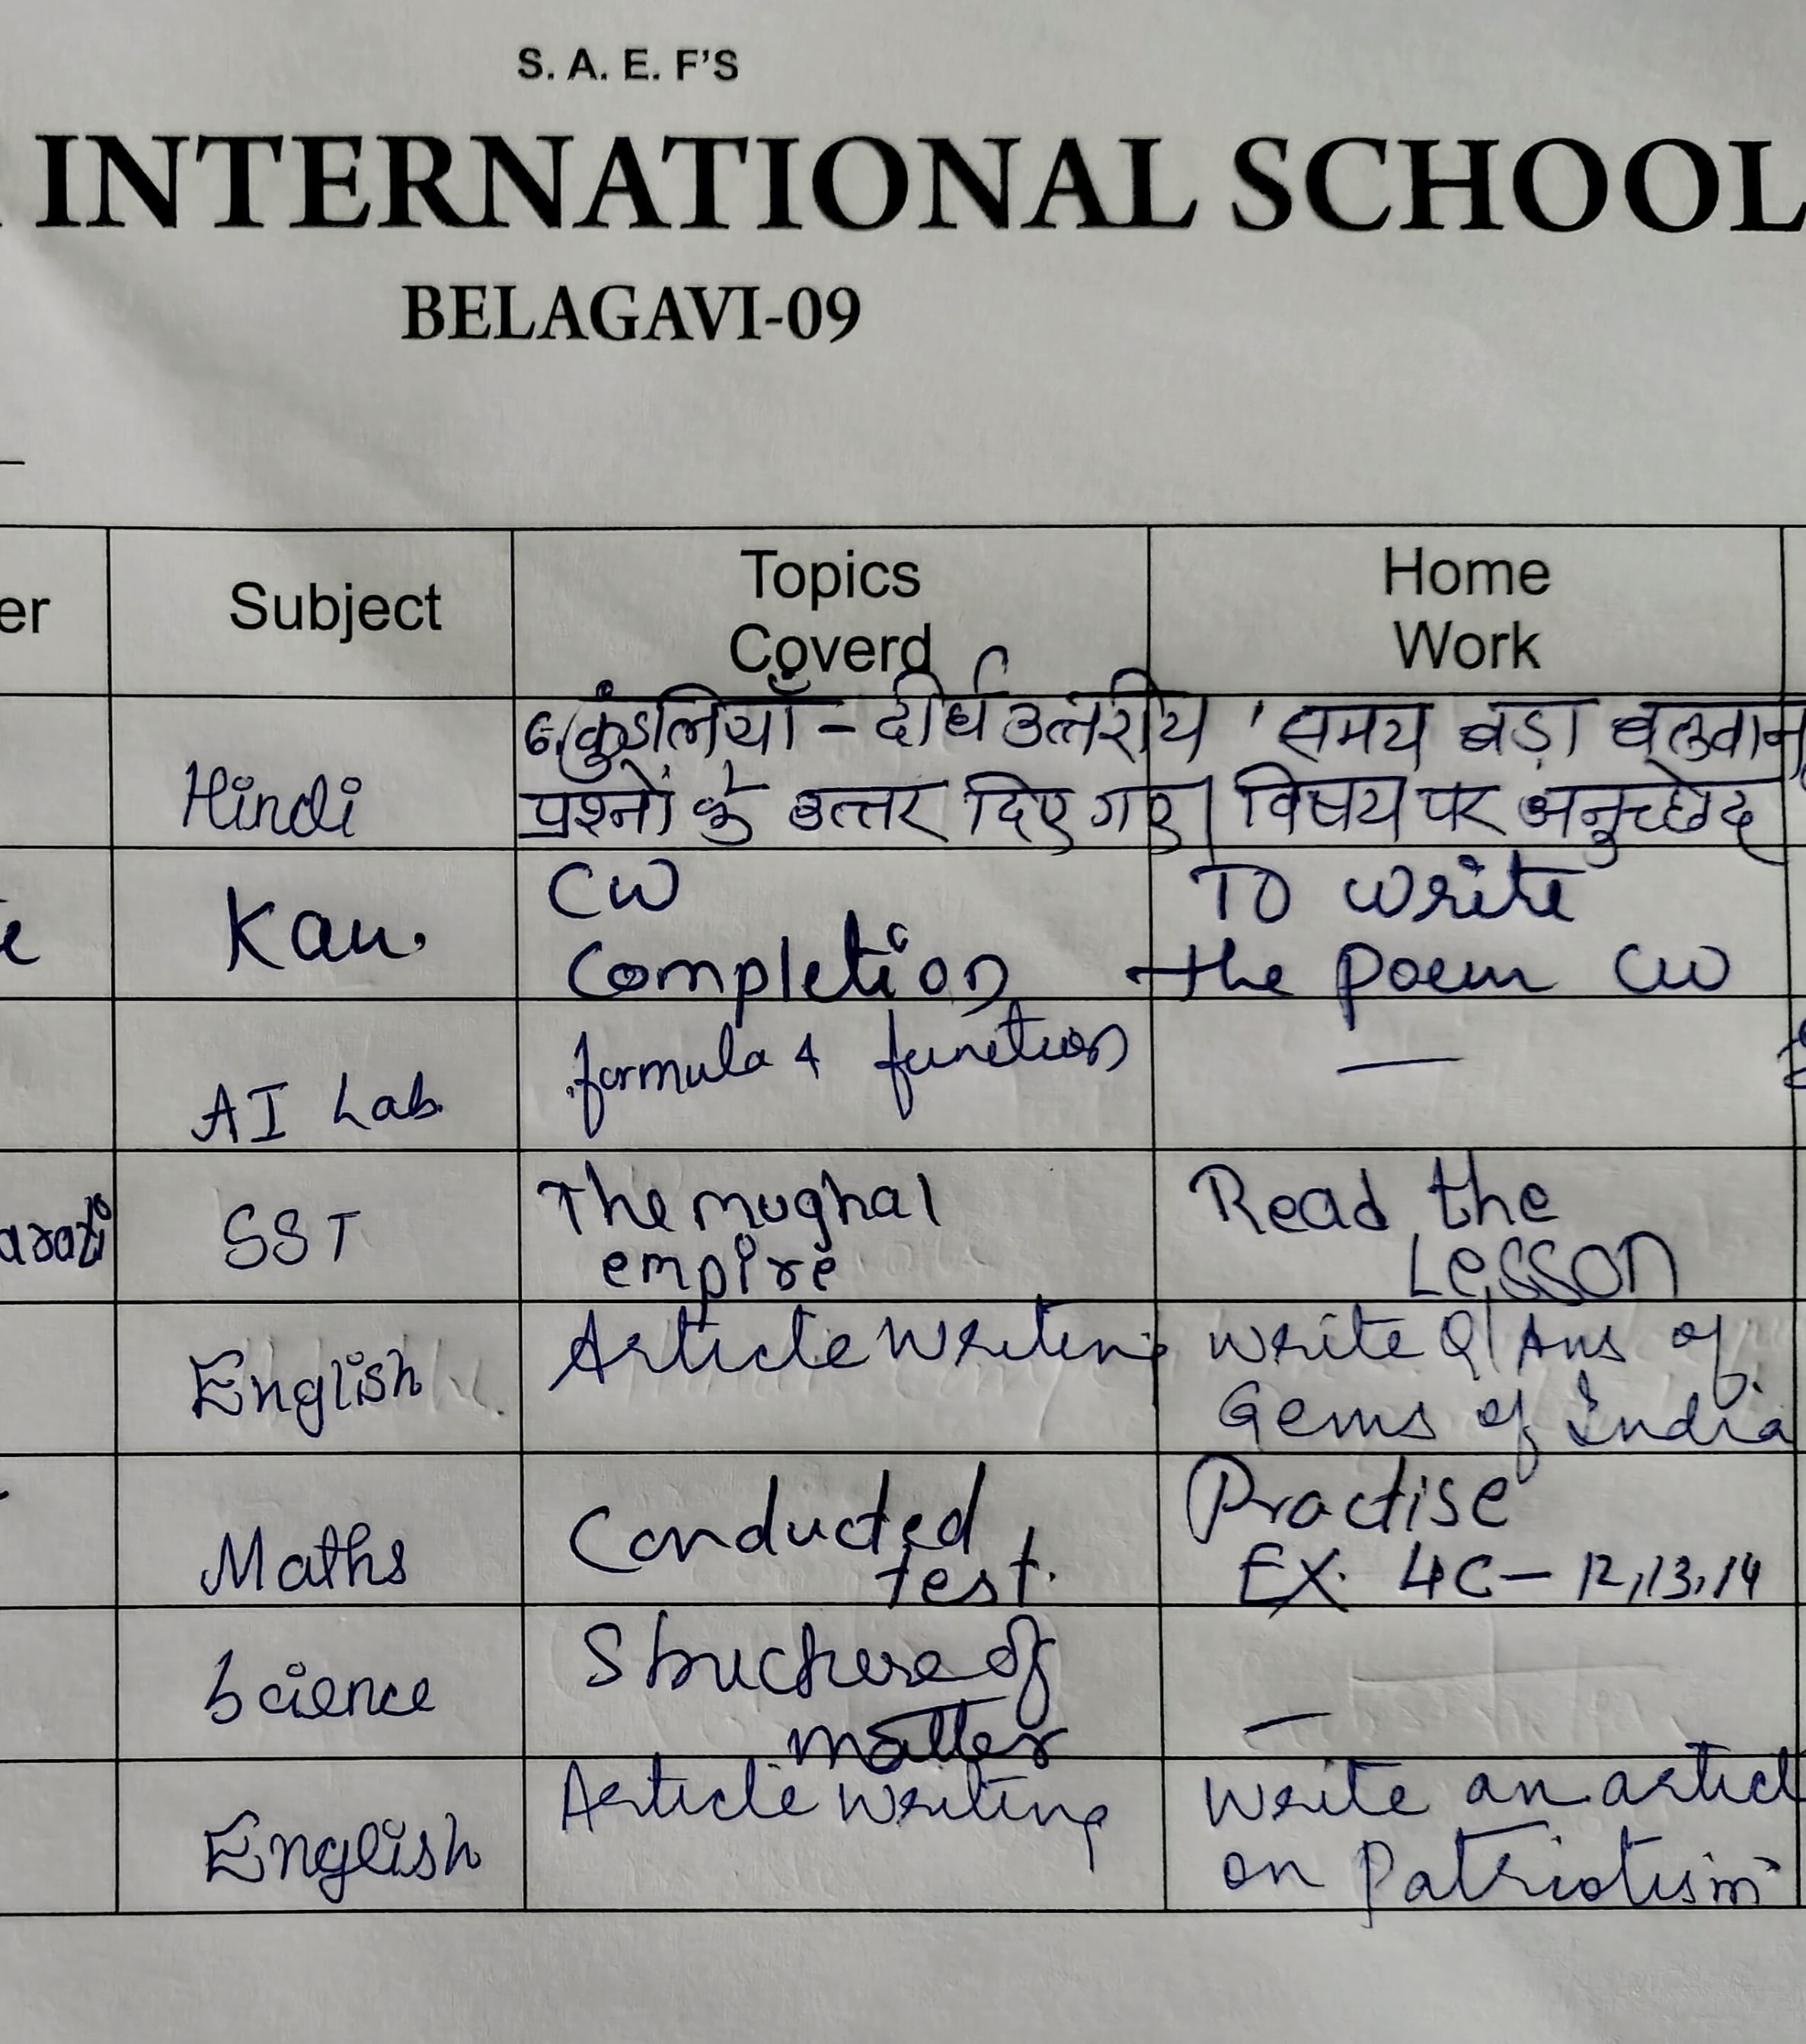 S. A. E. F'S
INTERNATIONAL SCHOOL
BELAGAVI-09
er Subject Topics Coverd Home Work
Hindi
6. कुंडलियाँ - दीर्घ उत्तरीय
प्रश्नों के उत्तर दिए गए।
'समय बड़ा बलवान'
विषय पर अनुच्छेद
Kan.
CW
Completion
To write
the poem CW
AI Lab.
formula & function
—
arati
SST
The mughal
empire
Read the
Lesson
English
Article Writing
Write Q/Ans of
Gems of India
Maths
Conducted
test.
Practise
EX. 4C - 12,13,14
Science
Structure of
matter
—
English
Article Writing
Write an articl
on Patriotism